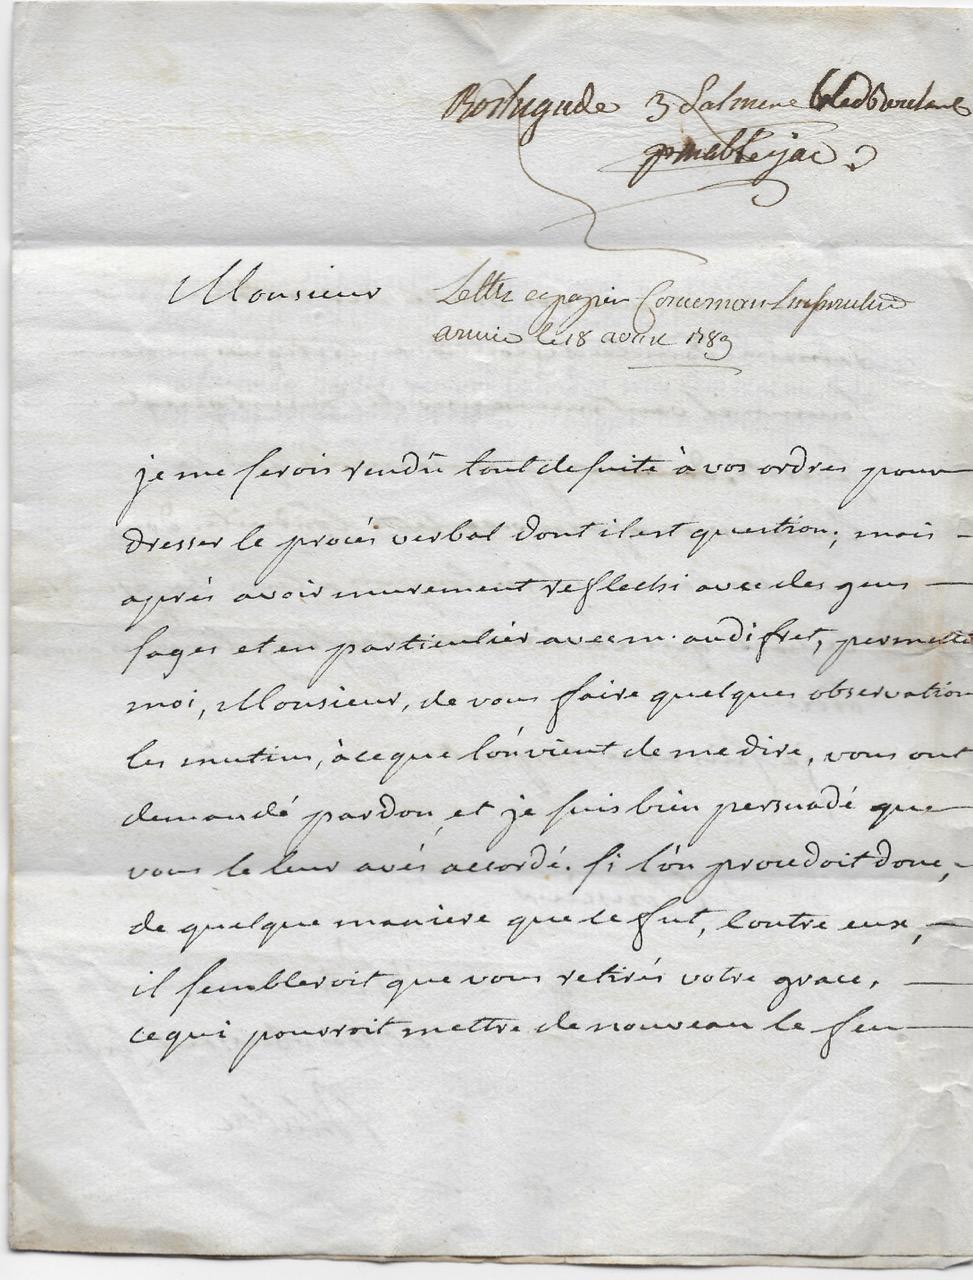 Monsieur
Lettre et papier
arrivé le 18 aoust 1789
je me serois rendû tout de suite à vos ordres pour
dresser le procés verbal dont il est question; mais
aprés avoir murement reflechi avec des gens
sages et en particulier avec m. audifret, permetté
moi, Monsieur, de vous faire quelques observation
les mutins, à ce que l'on vient de me dire, vous ont
demandé pardon, et je suis bien persuadé que
vous le leur avés accordé. si l'on procedoit donc,
de quelque maniere que ce fut, contre eux,
il sembleroit que vous retirés votre grace,
ce qui pourroit mettre de nouveau le feu